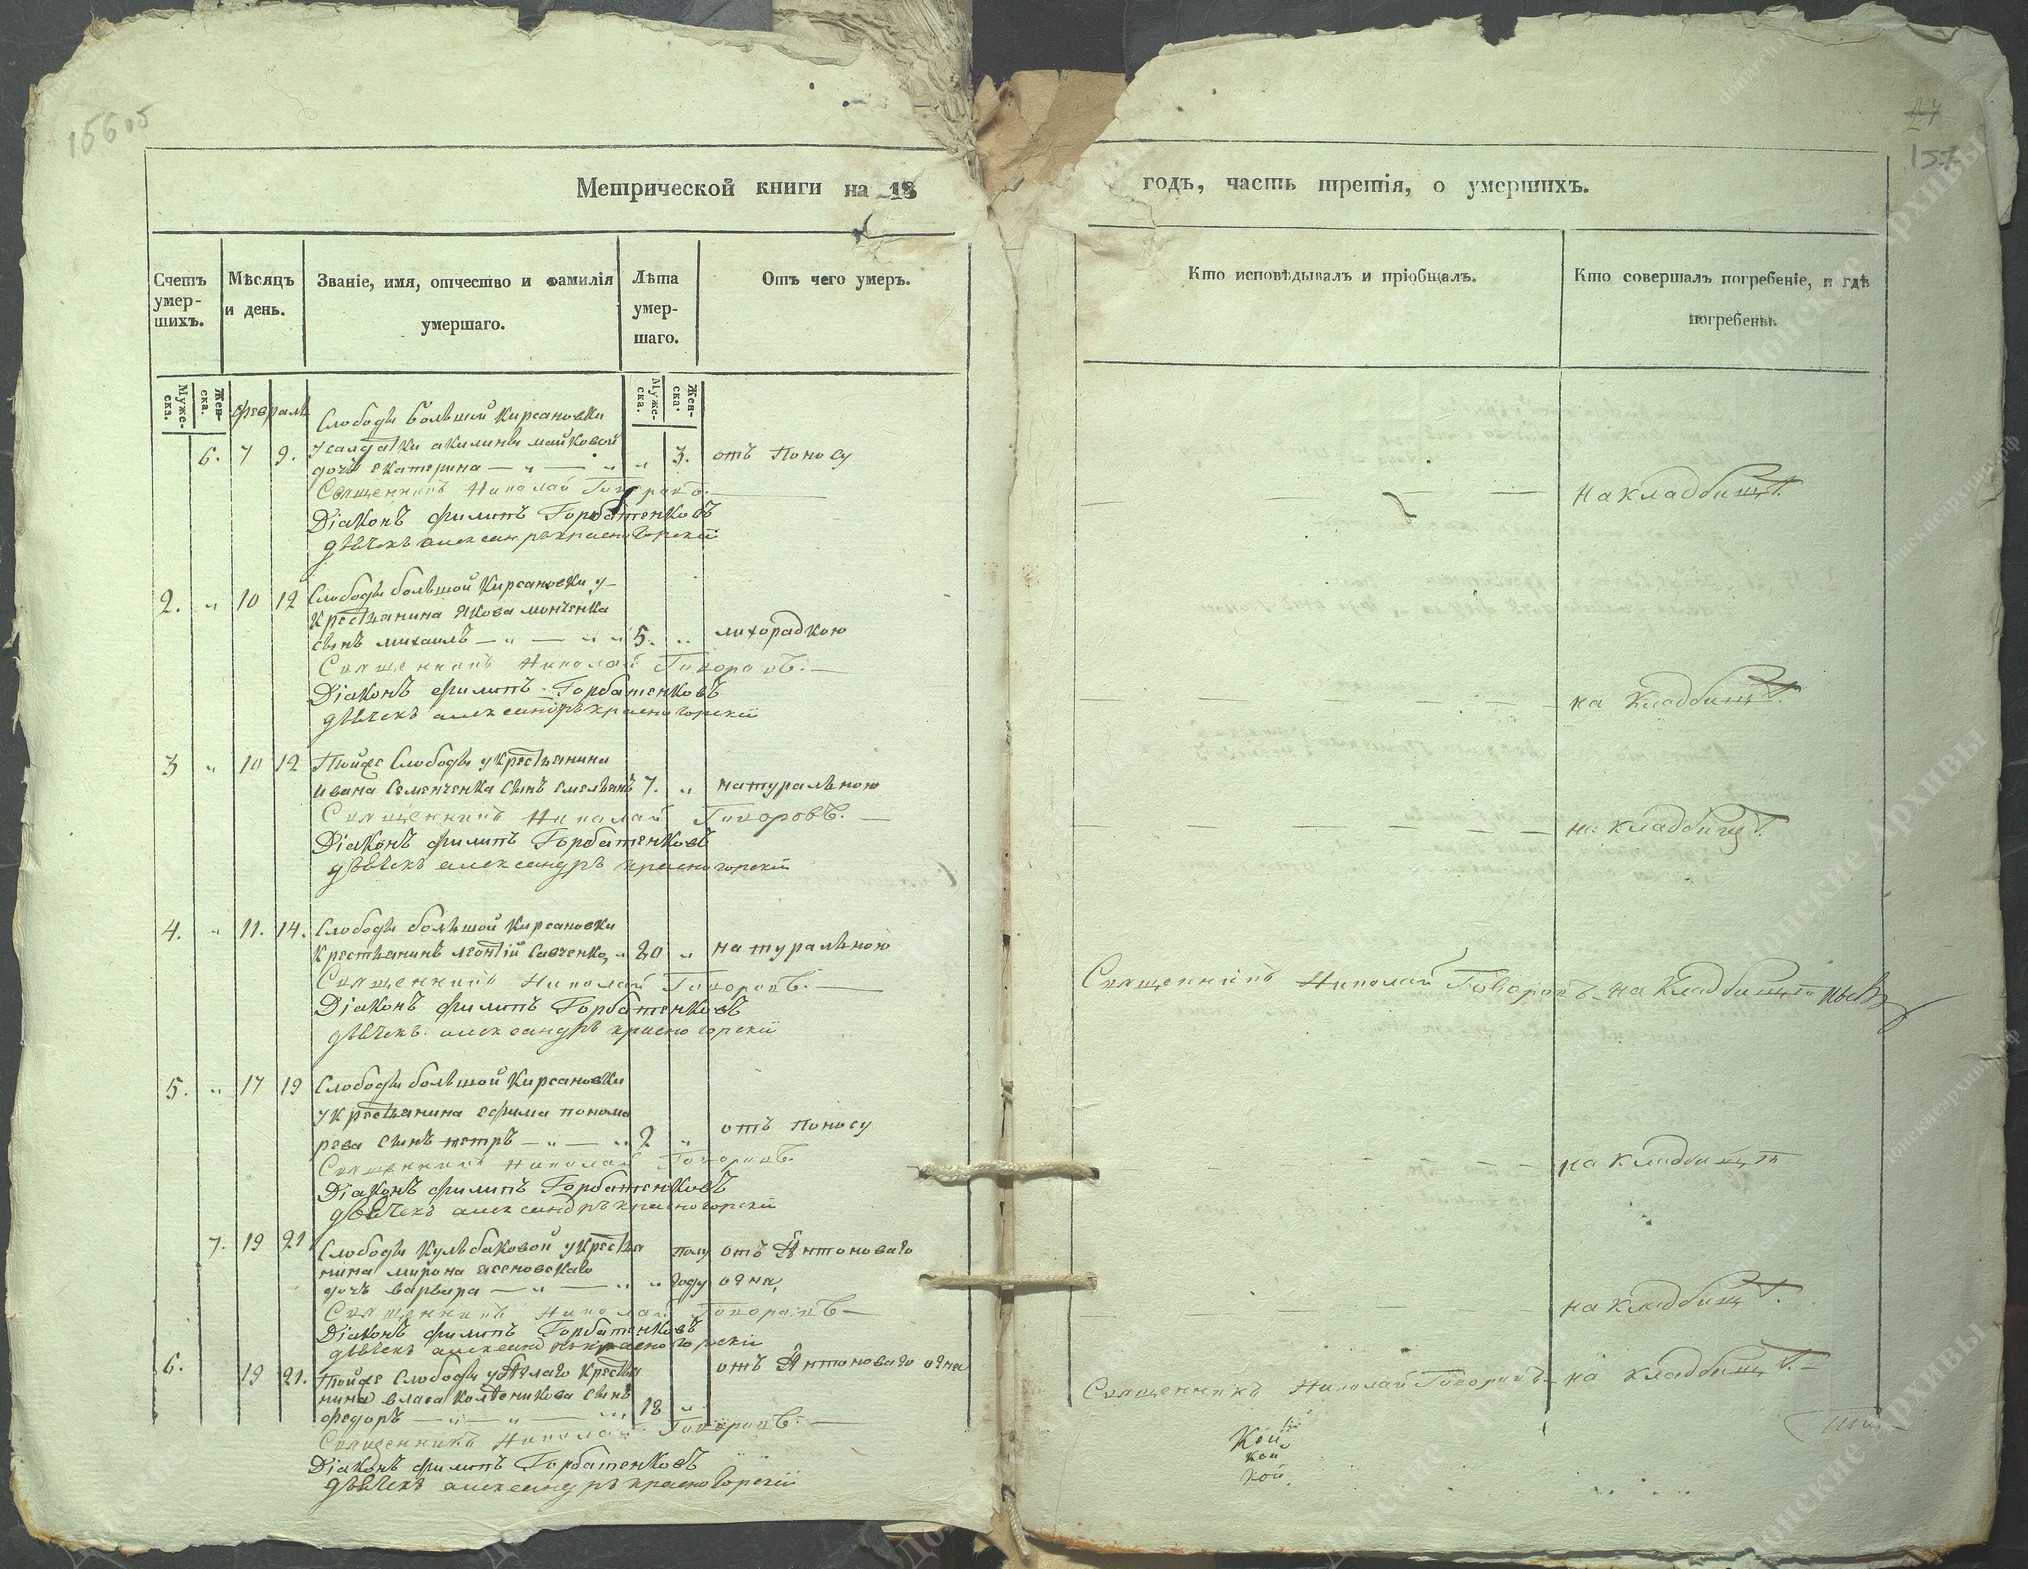 15605
27
157
Метрической книги на 18
годъ, часть третія, о умершихъ.
Счетъ умер-шихъ.
Мѣсяцъ и день.
Званіе, имя, отчество и фамилія умершаго.
Лѣта умер-шаго.
Отъ чего умеръ.
Кто исповѣдывалъ и пріобщалъ.
Кто совершалъ погребеніе, и гдѣ погребены.
Муже-ска.
Жен-ска.
Муже-ска.
Жен-ска.
февраль
Слободы большой Кирсановки
6. 7 9. у салдатки акилины майковой
дочь екатерина — „ — „ „ 3. отъ поносу
Священникъ Николай Говоровъ.
Діаконъ филипъ Горбатенковъ
дьячекъ александръ красногорскій
на кладбищѣ.
2. „ 10 12 Слободы большой Кирсановки у
крестьянина Якова монченка
сынъ михаилъ — „ — „ „ 5. „ лихорадкою
Священникъ Николай Говоровъ. —
Діаконъ филипъ Горбатенковъ
дьячекъ александръ красногорскій
на кладбищѣ.
3 „ 10 12 Тойже Слободы у крестьянина
ивана Семенченка сынъ емельянъ 7. „ натуральною
Священникъ Николай Говоровъ. —
Діаконъ филипъ Горбатенковъ
дьячекъ александръ красногорскій
на кладбищѣ.
4. „ 11. 14. Слободы большой Кирсановки
крестьянинъ леонтій Савченко, „ 20 „ натуральною
Священникъ Николай Говоровъ. —
Діаконъ филипъ Горбатенковъ
дьячекъ александръ красногорскій
Священникъ Николай Говоровъ на кладбищѣ
5. „ 17 19 Слободы большой Кирсановки
у крестьянина ефима понома
рева сынъ петръ — „ — „ 2 „ отъ поносу
Священникъ Николай Говоровъ.
Діаконъ филипъ Горбатенковъ
дьячекъ александръ красногорскій
на кладбищѣ
7. 19 21 Слободы Кульбаковой у крестья
нина мирона ясеновскаго
дочь варвара — „ — „ „ полу году отъ Антоноваго огня
Священникъ Николай Говоровъ —
Діаконъ филипъ Горбатенковъ
дьячекъ александръ красногорскій
на кладбищѣ.
6. 19 21. Тойже Слободы крестья
нина власа сынъ
федоръ — „ — „ — „ 18 „ отъ Антоноваго огня
Священникъ Николай Говоровъ. —
Діаконъ филипъ Горбатенковъ
дьячекъ александръ красногорскій
Священникъ Николай Говоровъ на кладбищѣ. —
Кой
кой
кой